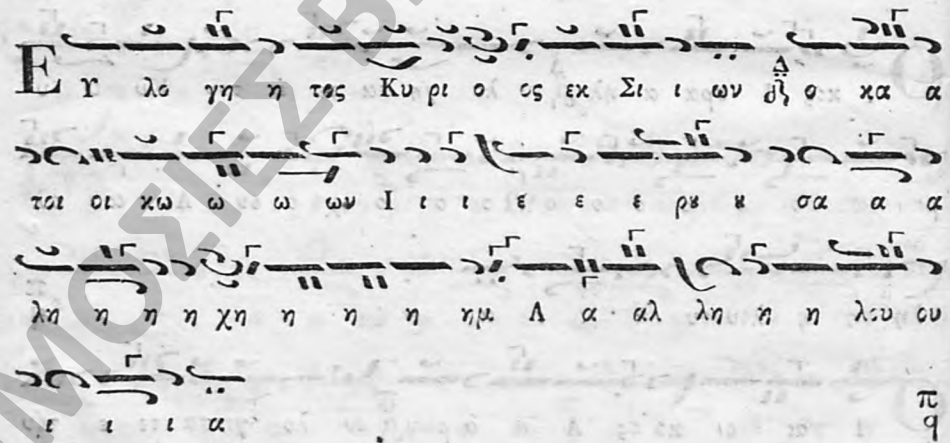 Ευ λο γη η τος Κυ ρι ο ος εκ Σι ι ων Δ ο κα α
τοι οι κω ω ω ων Ι ι ι ε ε ε ρȣ ȣ σα α α
λη η η η χη η η η ημ Α α αλ λη η η λου ου
ι ι ι α π q
ΜΟΣΙΕΣ Β